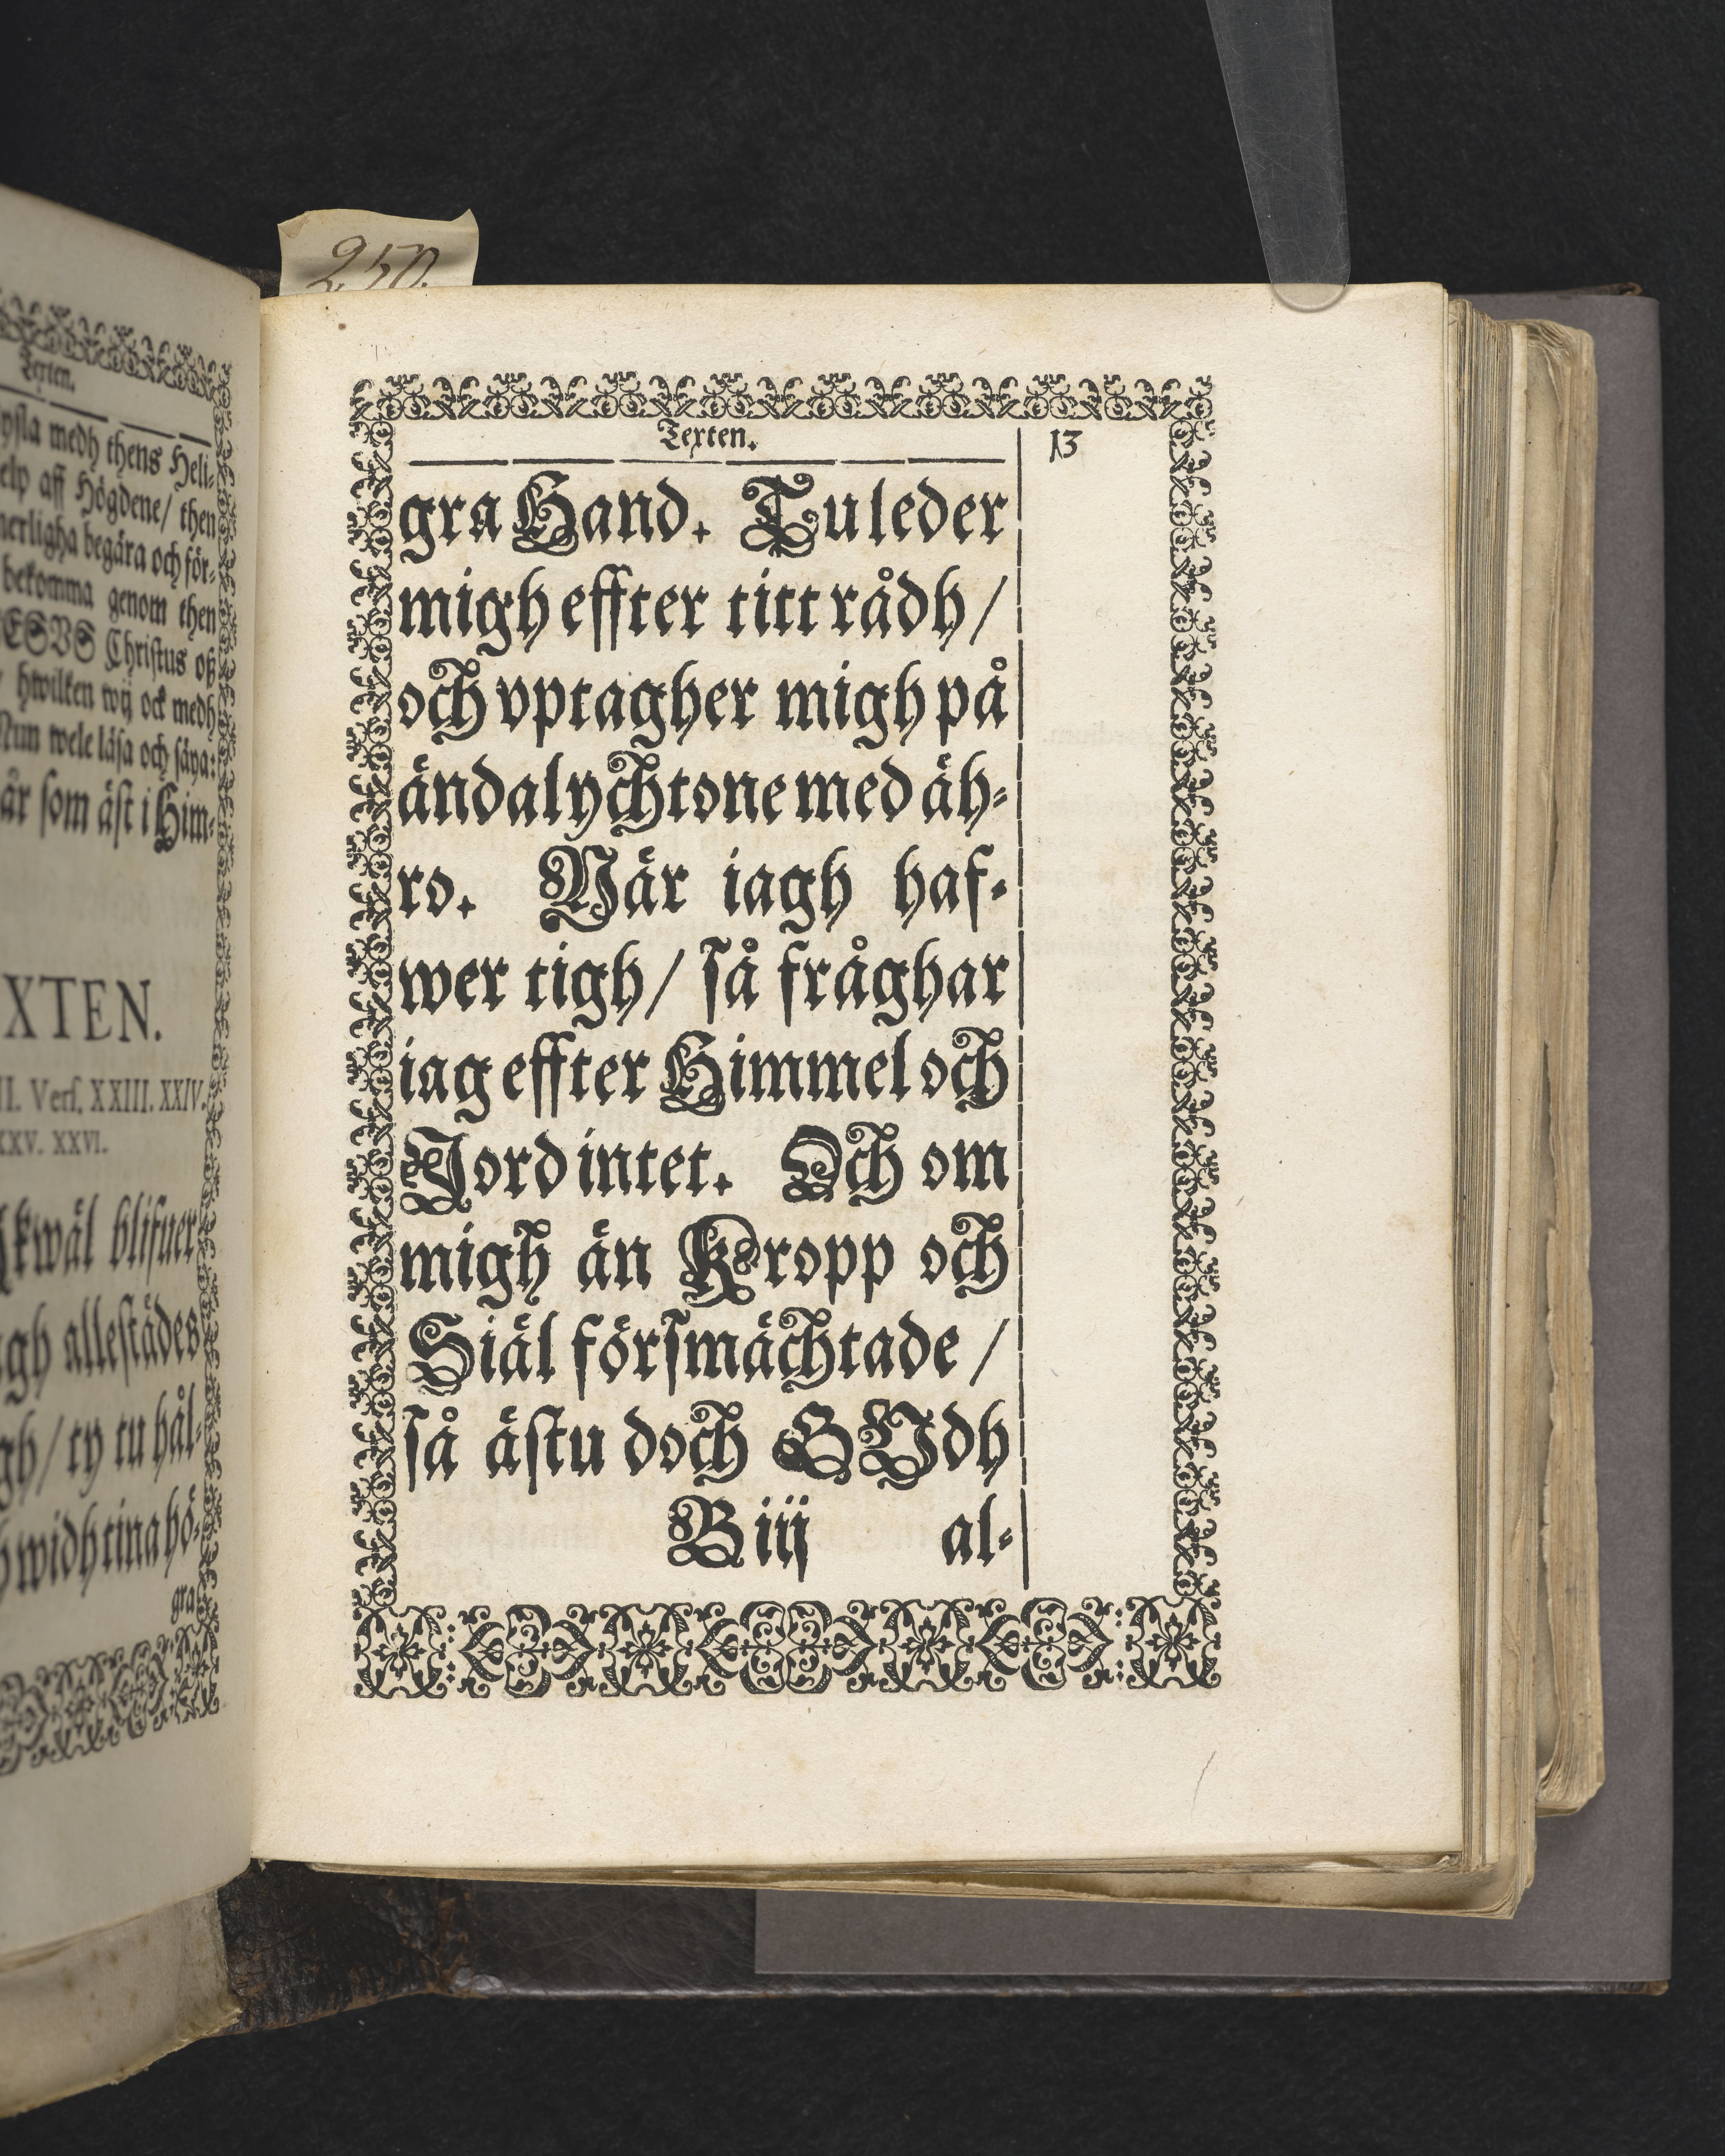 250.
Texten.
ysla medh thens Heli-
elp aff Högdene/ then
nerligha begära och för-
bekomma genom then
ESVS Christus oß
hwilken wij ock medh
Nun wele läsa och säya:
år som äst i Him-
XTEN.
II. Vers. XXIII. XXIV.
XXV. XXVI.
kwäl blifuer
gh allestädes
gh/ ty tu hål-
h widh tina hö-
gra
Texten.
13
gra Hand. Tu leder
migh effter titt rådh/
och vptagher migh på
ändalychtone med äh-
ro. När iagh haf-
wer tigh/ så fråghar
iag effter Himmel och
Jord intet. Och om
migh än Kropp och
Siäl försmächtade/
så ästu doch GUdh
B iij
al-